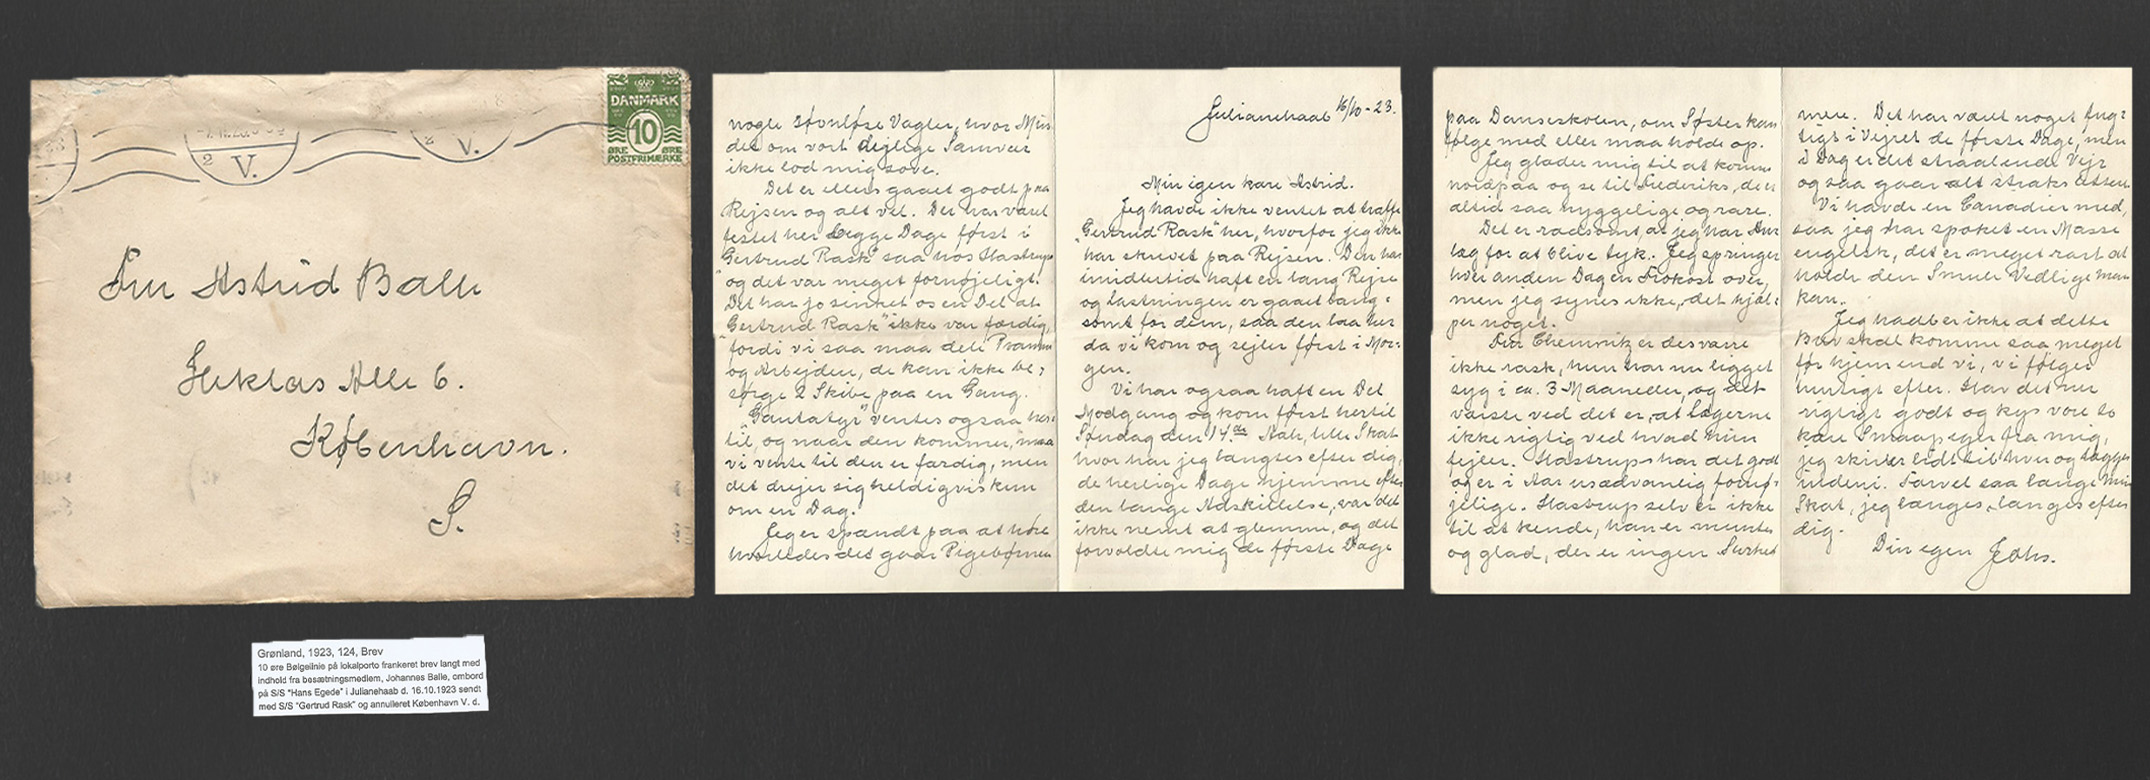 DANMARK
10
ØRE ØRE
POSTFRIMÆRKE
2
V.
2
V.
Fru Astrid Balle
Heklas Alle 6.
København.
S.
Grønland, 1923, 124, Brev
10 øre Bølgelinie på lokalporto frankeret brev langt med
indhold fra besætningsmedlem, Johannes Balle, ombord
på S/S "Hans Egede" i Julianehaab d. 16.10.1923 sendt
med S/S "Gertrud Rask" og annulleret København V. d.
Julianehaab 16/10-23.
Min egen kære Astrid.
Jeg havde ikke ventet at træffe
"Gertrud Rask" her, hvorfor jeg ikke
har skrevet paa Rejsen. Den har
imidlertid haft en lang Rejse
og Lastningen er gaaet lang-
somt for dem, saa den laa her
da vi kom og sejler først i Mor-
gen.
Vi har ogsaa haft en Del
Modgang og kom først hertil
Søndag den 14de Aah, lille Skat
hvor har jeg længtes efter dig,
de herlige Dage hjemme efter
den lange Adskillelse, var det
ikke nemt at glemme, og det
forvoldte mig de første Dage
nogle søvnløse Vagter, hvor Min-
det om vort dejlige Samvær
ikke lod mig sove.
Det er ellers gaaet godt paa
Rejsen og alt vel. Der har været
festet her begge Dage først i
"Gertrud Rask" saa hos Hastrups
og det var meget fornøjeligt.
Det har jo sinket os en Del at
"Gertrud Rask" ikke var færdig,
fordi vi saa maa dele Pramme
og Arbejder, de kan ikke be-
sørge 2 Skibe paa en Gang.
"Gamtatyr" ventes ogsaa her-
til, og naar den kommer, maa
vi vente til den er færdig, men
det drejer sig heldigvis kun
om en Dag.
Jeg er spændt paa at høre
hvorledes det gaar Pigebørnene
paa Danseskolen, om Søster kan
følge med eller maa holde op.
Jeg glæder mig til at komme
nordpaa og se til Frederiks, de er
altid saa hyggelige og rare.
Det er rædsomt at jeg har An-
læg for at blive tyk. Jeg springer
hver anden Dag en Frokost over,
men jeg synes ikke, det hjæl-
per noget.
Fru Chemnitz er desværre
ikke rask, hun har nu ligget
syg i ca. 3 Maaneder, og det
værste ved det er, at Lægerne
ikke rigtig ved hvad hun
fejler. Hastrups har det godt
og er i Aar usædvanlig fornø-
jelige. Hastrup selv er ikke
til at kende, han er munter
og glad, der er ingen Surhed
mere. Det har været noget fug-
tigt i Vejret de første Dage, men
i Dag er det straalende Vejr
og saa gaar alt straks lettere.
Vi havde en Canadier med,
saa jeg har spoket en Masse
engelsk, det er meget rart at
holde den Smule Vedlige man
kan.
Jeg haaber ikke at dette
Brev skal komme saa meget
før hjem end vi, vi følger
hurtigt efter. Hav det nu
rigtigt godt og kys vore to
kære Smaapiger fra mig,
jeg skriver lidt til hver og lægger
indeni. Farvel saa længe min
Skat, jeg længes, længes efter
dig.
Din egen Johs.